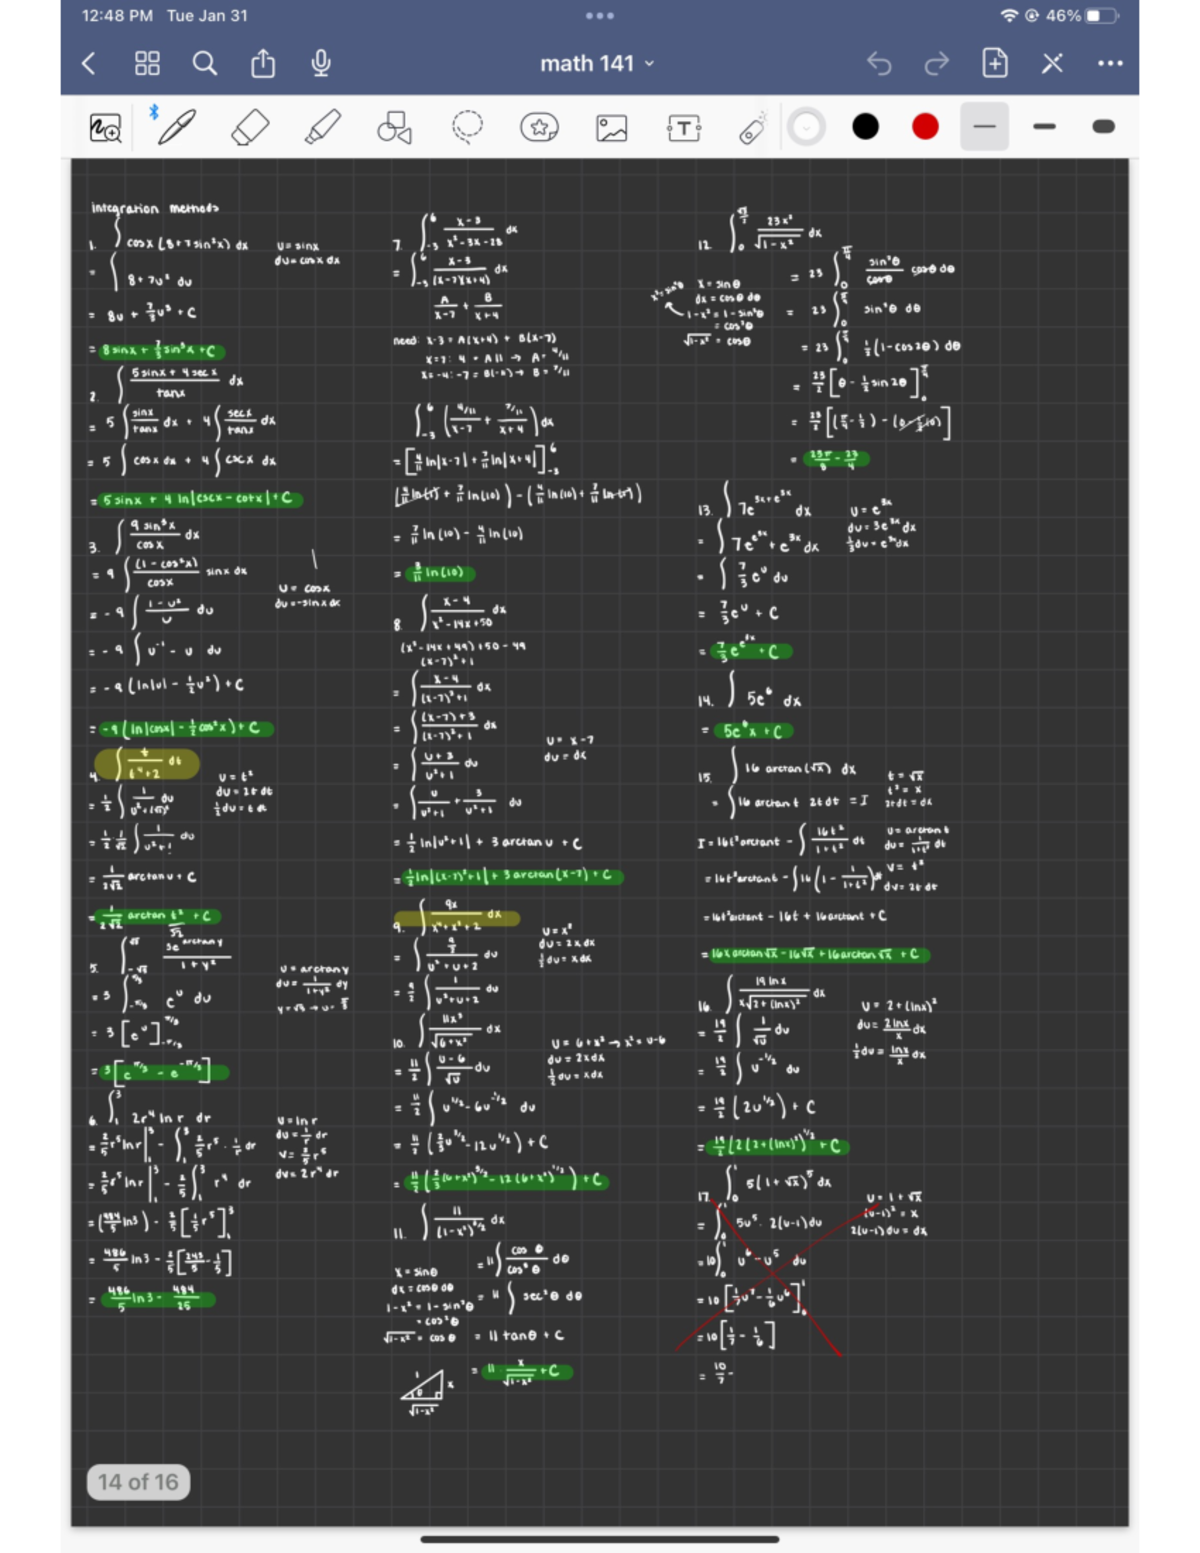 12:48 PM Tue Jan 31
46%
math 141
integration methods
1. ∫ cosx (8+7sin²x) dx
u = sinx
du = cosx dx
= ∫ 8+7u² du
= 8u + 7/3 u³ + C
= 8sinx + 7/3 sin³x + C
2. ∫ (5sinx + 4secx)/tanx dx
= 5 ∫ sinx/tanx dx + 4 ∫ secx/tanx dx
= 5 ∫ cosx dx + 4 ∫ cscx dx
= 5sinx + 4 ln|cscx - cotx| + C
3. ∫ 9sin³x/cosx dx
= 9 ∫ (1-cos²x)/cosx sinx dx
u = cosx
du = -sinx dx
= -9 ∫ (1-u²)/u du
= -9 ∫ u⁻¹ - u du
= -9 (ln|u| - 1/2 u²) + C
= -9 (ln|cosx| - 1/2 cos²x) + C
4. ∫ t/(t⁴+2) dt
u = t²
du = 2t dt
1/2 du = t dt
= 1/2 ∫ 1/(u²+(√2)²) du
= 1/2 · 1/√2 ∫ 1/(u²+1) du
= 1/(2√2) arctan u + C
= 1/(2√2) arctan t²/√2 + C
5. ∫_-√3^√3 3e^arctany/(1+y²)
u = arctany
du = 1/(1+y²) dy
y = √3 → u = π/3
= 3 ∫_-π/3^π/3 e^u du
= 3 [e^u]_-π/3^π/3
= 3 [e^π/3 - e^-π/3]
6. ∫_1^3 2r⁴ ln r dr
u = ln r
du = 1/r dr
v = 2/5 r⁵
dv = 2r⁴ dr
= 2/5 r⁵ lnr |_1^3 - ∫_1^3 2/5 r⁵ · 1/r dr
= 2/5 r⁵ lnr |_1^3 - 2/5 ∫_1^3 r⁴ dr
= (484/5 ln3) - 2/5 [1/5 r⁵]_1^3
= 486/5 ln3 - 2/5 [243/5 - 1/5]
= 486/5 ln3 - 484/25
7. ∫_-3^6 (x-3)/(x²-3x-28) dx
= ∫_-3^6 (x-3)/((x-7)(x+4)) dx
A/(x-7) + B/(x+4)
need: x-3 = A(x+4) + B(x-7)
x=7: 4 = A11 → A = 4/11
x=-4: -7 = B(-11) → B = 7/11
∫_-3^6 ((4/11)/(x-7) + (7/11)/(x+4)) dx
= [4/11 ln|x-7| + 7/11 ln|x+4|]_-3^6
(4/11 ln(1) + 7/11 ln(10)) - (4/11 ln(10) + 7/11 ln(1))
= 7/11 ln(10) - 4/11 ln(10)
= 3/11 ln(10)
8. ∫ (x-4)/(x²-14x+50) dx
(x²-14x+49)+50-49
(x-7)²+1
= ∫ (x-4)/((x-7)²+1) dx
= ∫ ((x-7)+3)/((x-7)²+1) dx
u = x-7
du = dx
= ∫ (u+3)/(u²+1) du
= ∫ u/(u²+1) + 3/(u²+1) du
= 1/2 ln|u²+1| + 3 arctan u + C
= 1/2 ln|(x-7)²+1| + 3 arctan(x-7) + C
9. ∫ 9x/(x⁴+x²+2) dx
u = x²
du = 2x dx
1/2 du = x dx
= ∫ (9/2)/(u²+u+2) du
= 9/2 ∫ 1/(u²+u+2) du
10. ∫ 11x³/√(6+x²) dx
u = 6+x² → x² = u-6
du = 2xdx
1/2 du = xdx
= 11/2 ∫ (u-6)/√u du
= 11/2 ∫ u^1/2 - 6u^-1/2 du
= 11/2 (2/3 u^3/2 - 12u^1/2) + C
= 11/2 (2/3 (6+x²)^3/2 - 12(6+x²)^1/2) + C
11. ∫ 11/(1-x²)^3/2 dx
x = sinθ
dx = cosθ dθ
1-x² = 1-sin²θ
= cos²θ
√(1-x²) = cosθ
= 11 ∫ cosθ/cos³θ dθ
= 11 ∫ sec²θ dθ
= 11 tanθ + C
= 11 · x/√(1-x²) + C
1
x
θ
√(1-x²)
12. ∫_0^(√2/2) 23x²/√(1-x²) dx
x² = sin²θ
x = sinθ
dx = cosθ dθ
1-x² = 1-sin²θ
= cos²θ
√(1-x²) = cosθ
= 23 ∫_0^π/4 sin²θ/cosθ cosθ dθ
= 23 ∫_0^π/4 sin²θ dθ
= 23 ∫_0^π/4 1/2 (1-cos2θ) dθ
= 23/2 [θ - 1/2 sin2θ]_0^π/4
= 23/2 [(π/4 - 1/2) - (0 - 1/2(0))]
= 23π/8 - 23/4
13. ∫ 7e^(3x+e^3x) dx
u = e^3x
du = 3e^3x dx
1/3 du = e^3x dx
= ∫ 7e^(e^3x) + e^3x dx
= ∫ 7/3 e^u du
= 7/3 e^u + C
= 7/3 e^(e^3x) + C
14. ∫ 5e⁶ dx
= 5e⁶x + C
15. ∫ 16 arctan(√x) dx
t = √x
t² = x
2tdt = dx
= ∫ 16 arctan t 2t dt = I
I = 16t² arctant - ∫ 16t²/(1+t²) dt
u = arctan t
du = 1/(1+t²) dt
v = t²
dv = 2t dt
= 16t² arctant - ∫ 16(1 - 1/(1+t²)) dt
= 16t² arctant - 16t + 16arctant + C
= 16x arctan√x - 16√x + 16arctan√x + C
16. ∫ 19 lnx/(x√(2+(lnx)²)) dx
u = 2+(lnx)²
du = 2lnx/x dx
1/2 du = lnx/x dx
= 19/2 ∫ 1/√u du
= 19/2 ∫ u^-1/2 du
= 19/2 (2u^1/2) + C
= 19/2 (2(2+(lnx)²)^1/2 + C
17. ∫_0^1 5(1+√x)⁵ dx
u = 1+√x
(u-1)² = x
2(u-1)du = dx
= ∫_0^1 5u⁵ · 2(u-1)du
= 10 ∫_0^1 u⁶ - u⁵ du
= 10 [1/7 u⁷ - 1/6 u⁶]_0^1
= 10 [1/7 - 1/6]
= 10/7 -
14 of 16